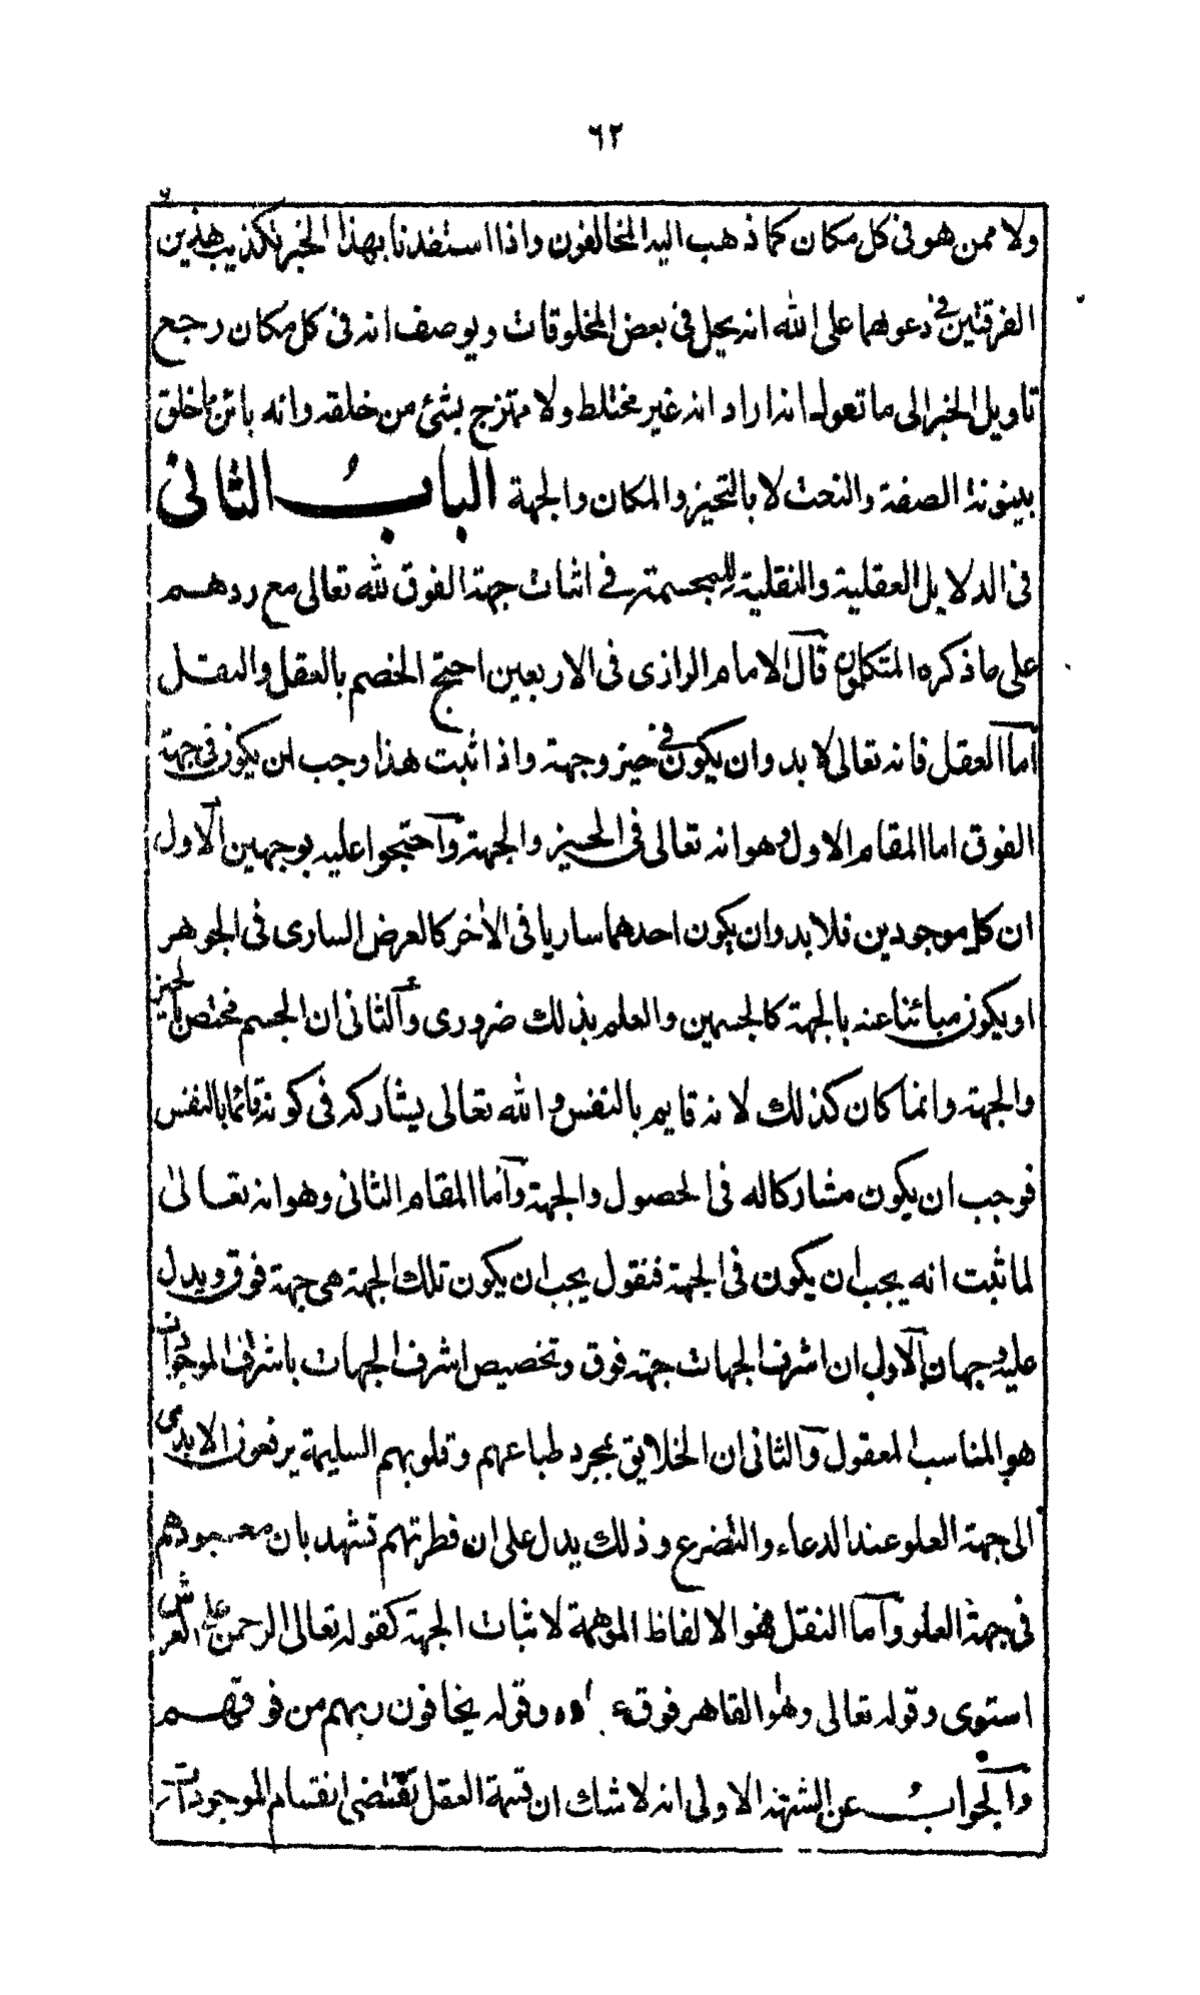 ٦٢
ولا ممن هو فى كل مكان كما ذهب اليه المخالفون واذا استفدنا بهذا الخبر تكذيب هذين
الفرقتين فى دعوٰهما على الله انه يحل فى بعض المخلوقات ويوصف انه فى كل مكان رجع
تاويل الخبر الى ما تعوله انه اراد انه غير مختلط ولا ممتزج بشئ من خلقه وانه بائن مما خلق
بينونة الصفة والنعت لا بالتحيز والمكان والجهة البابُ الثانى
فى الدلايل العقلية والنقلية للمجسمة فى اثبات جهة الفوق لله تعالى مع ردهم
على ما ذكره المتكلمون قال الامام الرازى فى الاربعين احتج الخصم بالعقل والنقل
اما العقل فانه تعالى لا بد وان يكون فى حيز وجهة واذا ثبت هذا وجب ان يكون فى جهة
الفوق اما المقام الاول وهو انه تعالى فى الحيز والجهة واحتجوا عليه بوجهين الاول
ان كل موجودين فلا بد وان يكون احدهما ساريا فى الأخر كالعرض السارى فى الجوهر
او يكون مبائنا عنه بالجهة كالجسمين والعلم بذلك ضرورى والثانى ان الجسم مختص بالحيز
والجهة وانما كان كذلك لانه قايم بالنفس والله تعالى يشاركه فى كونه قائما بالنفس
فوجب ان يكون مشاركا له فى الحصول والجهة واما المقام الثانى وهو انه تعالىٰ
لما ثبت انه يجب ان يكون فى الجهة فنقول يجب ان يكون تلك الجهة هى جهة فوق ويدل
عليه وجهان الاولى ان اشرف الجهات جهة فوق وتخصيص اشرف الجهات باشرف الموجودات
هو المناسب المعقول والثانى ان الخلايق بمجرد طباعهم وقلوبهم السليمة يرفعون الايدى
الى جهة العلو عند الدعاء والتضرع وذلك يدل على ان فطرتهم تشهد بان معبودهم
فى جهة العلو واما النقل فهو الالفاظ الموهمة لاثبات الجهة كقوله تعالى الرحمن على العرش
استوى وقوله تعالى وهو القاهر فوق وقوله يخافون ربهم من فوقهم
والجوابُ عن الشبهة الاولى انه لا شك ان قسمة العقل تقتضى انقسام الموجودات